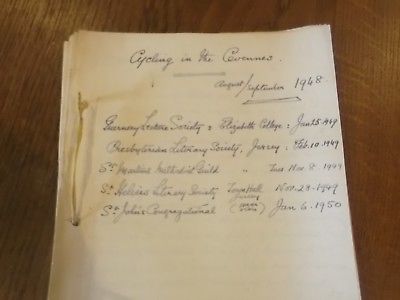 Cycling in the Cevennes.
August/September 1948.
Guernsey Lecture Society : Elizabeth College : Jan 25. 1949
Presbyterian Literary Society, Jersey : Feb. 10. 1949
St Martins Methodist Guild " Tues Nov. 8. 1949
St Heliers Literary Society Town Hall Nov. 23. 1949
Jersey
St John's Congregational Jan 6. 1950